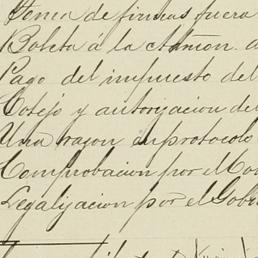 de fincas fuera
Boleta á la Admon. d
Pago del impuesto del
Cotejo y autorizacion del
Una razon en protocolo
Comprobacion por el Mo
Legalizacion por el Gob